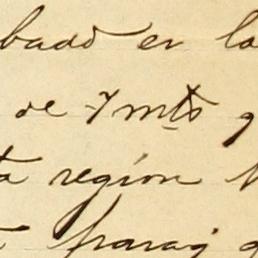 bado en la
de 7 mts q
ta región
parag q